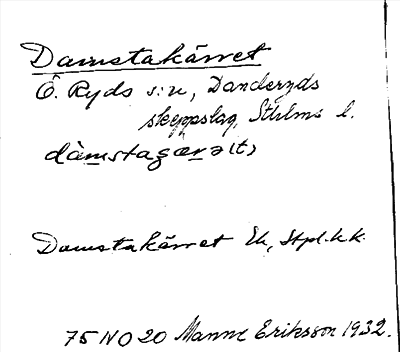 Damstakärret
Ö. Ryds s:n, Danderyds
skeppslag, Sthlms l.
dàmstaꞩærə(t)
Damstakärret Ek, Stpl.k.k.
75 NO 20 Manne Eriksson 1932.